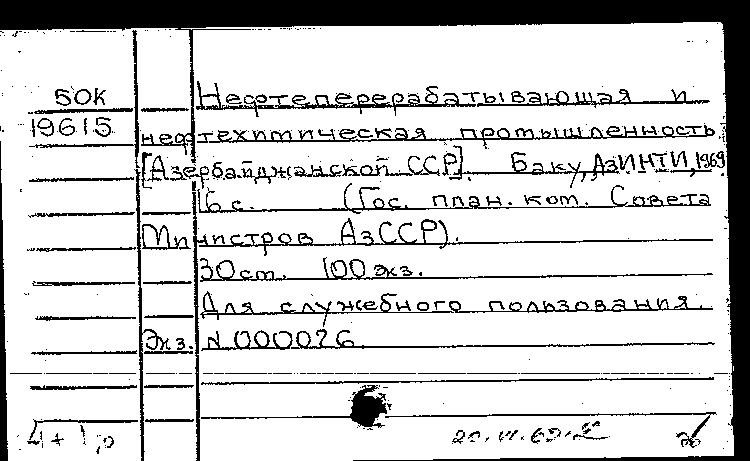 БОК
Нефтеперерабатывающая и
19615
нефтехимическая промышленность
[Азербайджанской ССР]. Баку, АзИНТИ, 1969
16 с. (Гос. план. ком. Совета
Министров АзССР).
30 ст. 100 экз.
Для служебного пользования.
Экз. N 000026
4+1р